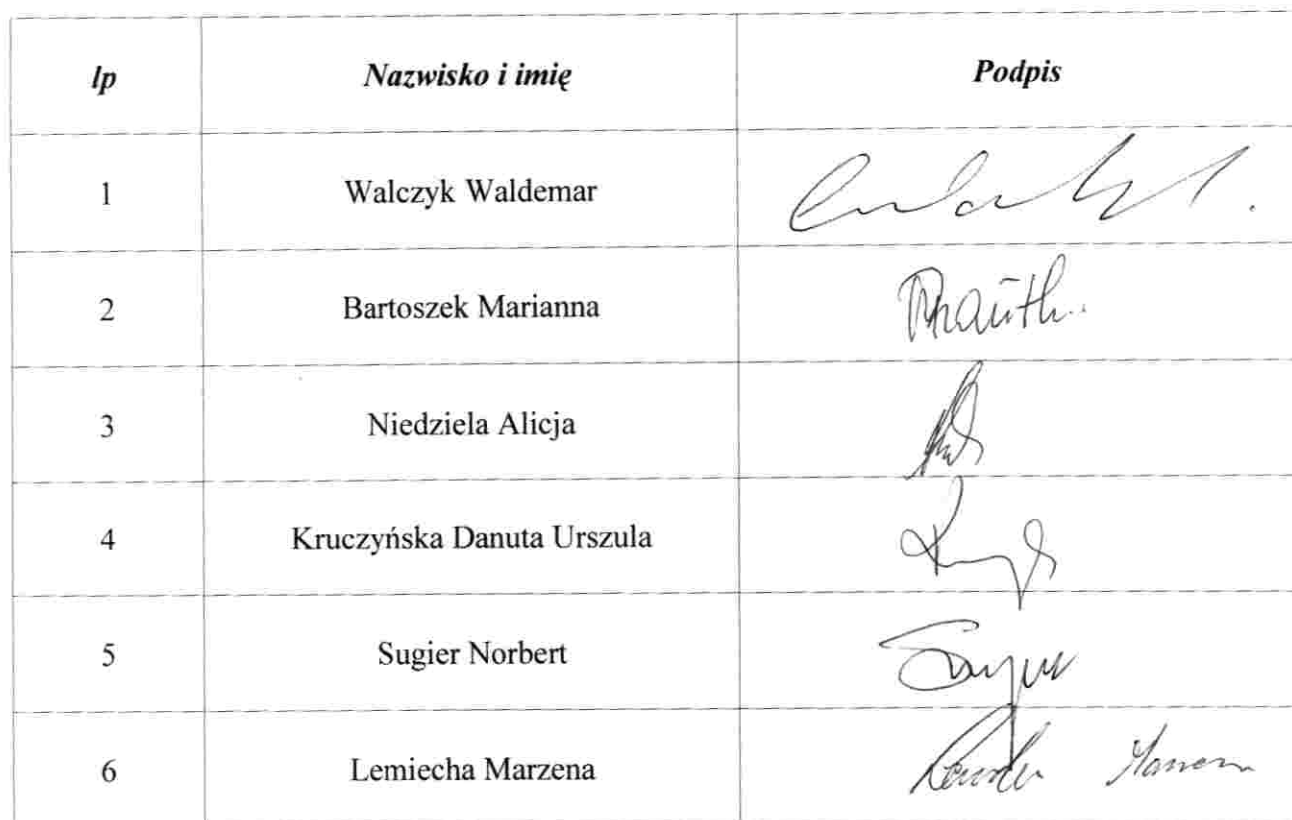 lp Nazwisko i imię Podpis
1 Walczyk Waldemar
2 Bartoszek Marianna
3 Niedziela Alicja
4 Kruczyńska Danuta Urszula
5 Sugier Norbert
6 Lemiecha Marzena